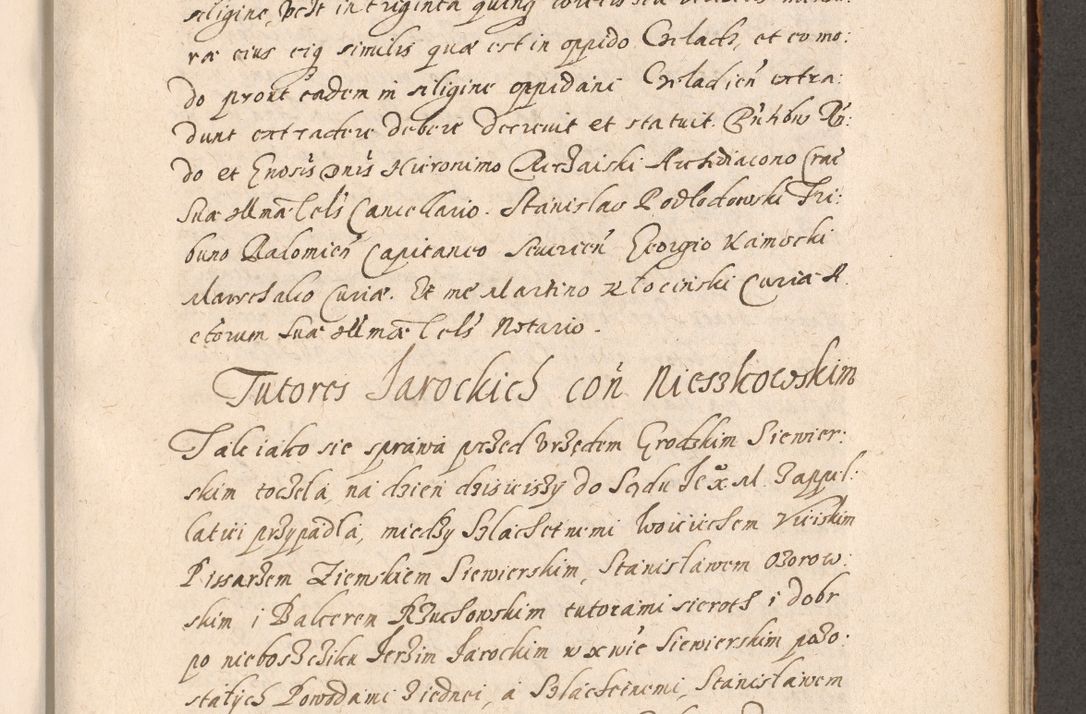 siligine, vz̃t in triginta quinq̃ coretis seu
ræ eius eiq̃ similis quæ est in oppido Czeladz, et eo mo:
do prout eadem in siligine oppidani Czeladień extra:
dunt extradere debere decrevit et statuit. Pñtibus Rñ:
do et Gnosis Dnis Hieronimo Powodowski Archidiacono Crac
Suæ Illmæ Cels Cancellario. Stanislao Podlodowski Tri:
buno Radomień Capitaneo Severień Georgio Kamocki
Marschalco Curiæ. Et me Martino Kłocinski Curiæ A
ctorum Suæ Illmæ Cels Notario.
Tutores Jarockich coñ Nieszkowskim
Tak iako sie sprawa przed Urzędem Grodzkim Siewier:
skim toczela, na dzien dzisieiszy do Sądu Je X M. z appel:
latiei przypadla, miedzy Szlachetnemi Woiciechem Kiciskim
Pissarzem Ziemskiem Siewierskim, Stanisławem Ozorow:
skim i Balcerem Rzuchowskim tutorami sieroth i dobr
po nieboszcziku Jerzim Jarockim w xwie Siewierskim pozo:
stałych Powodami z iednei, a Szlachetnemi, Stanisławem